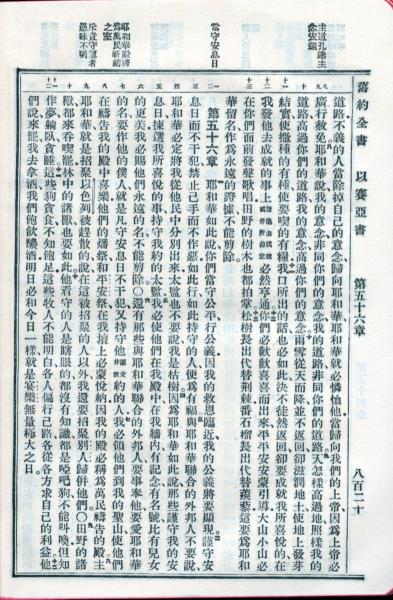 舊約全書 以賽亞書 第五十六章 八百二十
當守安息日
耶和華殿將
爲萬民祈禱
之室
斥責守望者
愚昧不明
道路不義的人當除掉自己的意念歸向耶和華耶和華就必憐恤他當歸向我們的上帝因爲上帝必
廣行赦免耶和華說我的意念非同你們的意念我的道路非同你們的道路天怎樣高過地照樣我的
道路高過你們的道路我的意念高過你們的意念雨雪從天而降並不返回卻滋潤地土使地上發芽
結實使撒種的有種使要喫的有糧我口所出的話也必如此決不徒然返回卻要成就我所喜悅的在
我發他去成就的事上必然亨通你們必歡歡喜喜而出來平平安安蒙引導大山小山必
在你們面前發聲歌唱田野的樹木也都拍掌松樹長出代替荊棘番石榴長出代替蒺藜這要爲耶和
華留名作爲永遠的證據不能剪除
第五十六章 耶和華如此說你們當守公平行公義因我的救恩臨近我的公義將要顯現謹守安
息日而不干犯禁止己手而不作惡如此行如此持守的人便爲有福與耶和華聯合的外邦人不要說
耶和華必定將我從他民中分別出來太監也不要說我是枯樹因爲耶和華如此說那些謹守我的安
息日揀選我所喜悅的事持守我約的太監我必使他們在我殿中在我牆內有記念有名號比有兒女
的更美我必賜他們永遠的名不能剪除○還有那些與耶和華聯合的外邦人要事奉他要愛耶和華
的名要作他的僕人就是凡守安息日不干犯又持守他原文作我約的人我必領他們到我的聖山使他們
在禱告我的殿中喜樂他們的燔祭和平安祭在我壇上必蒙悅納因我的殿必稱爲萬民禱告的殿主
耶和華就是招聚以色列被趕散的說在這被招聚的人以外我還要招聚別人歸併他們○田野的諸
獸都來吞喫罷林中的諸獸也要如此他看守的人是瞎眼的都沒有知識都是啞吧狗不能叫喚但知
作夢躺臥貪睡這些狗貪食不知飽足這些牧人不能明白各人偏行己路各從各方求自己的利益他
們說來罷我去拿酒我們飽飲醲酒明日必和今日一樣就是宴樂無量極大之日